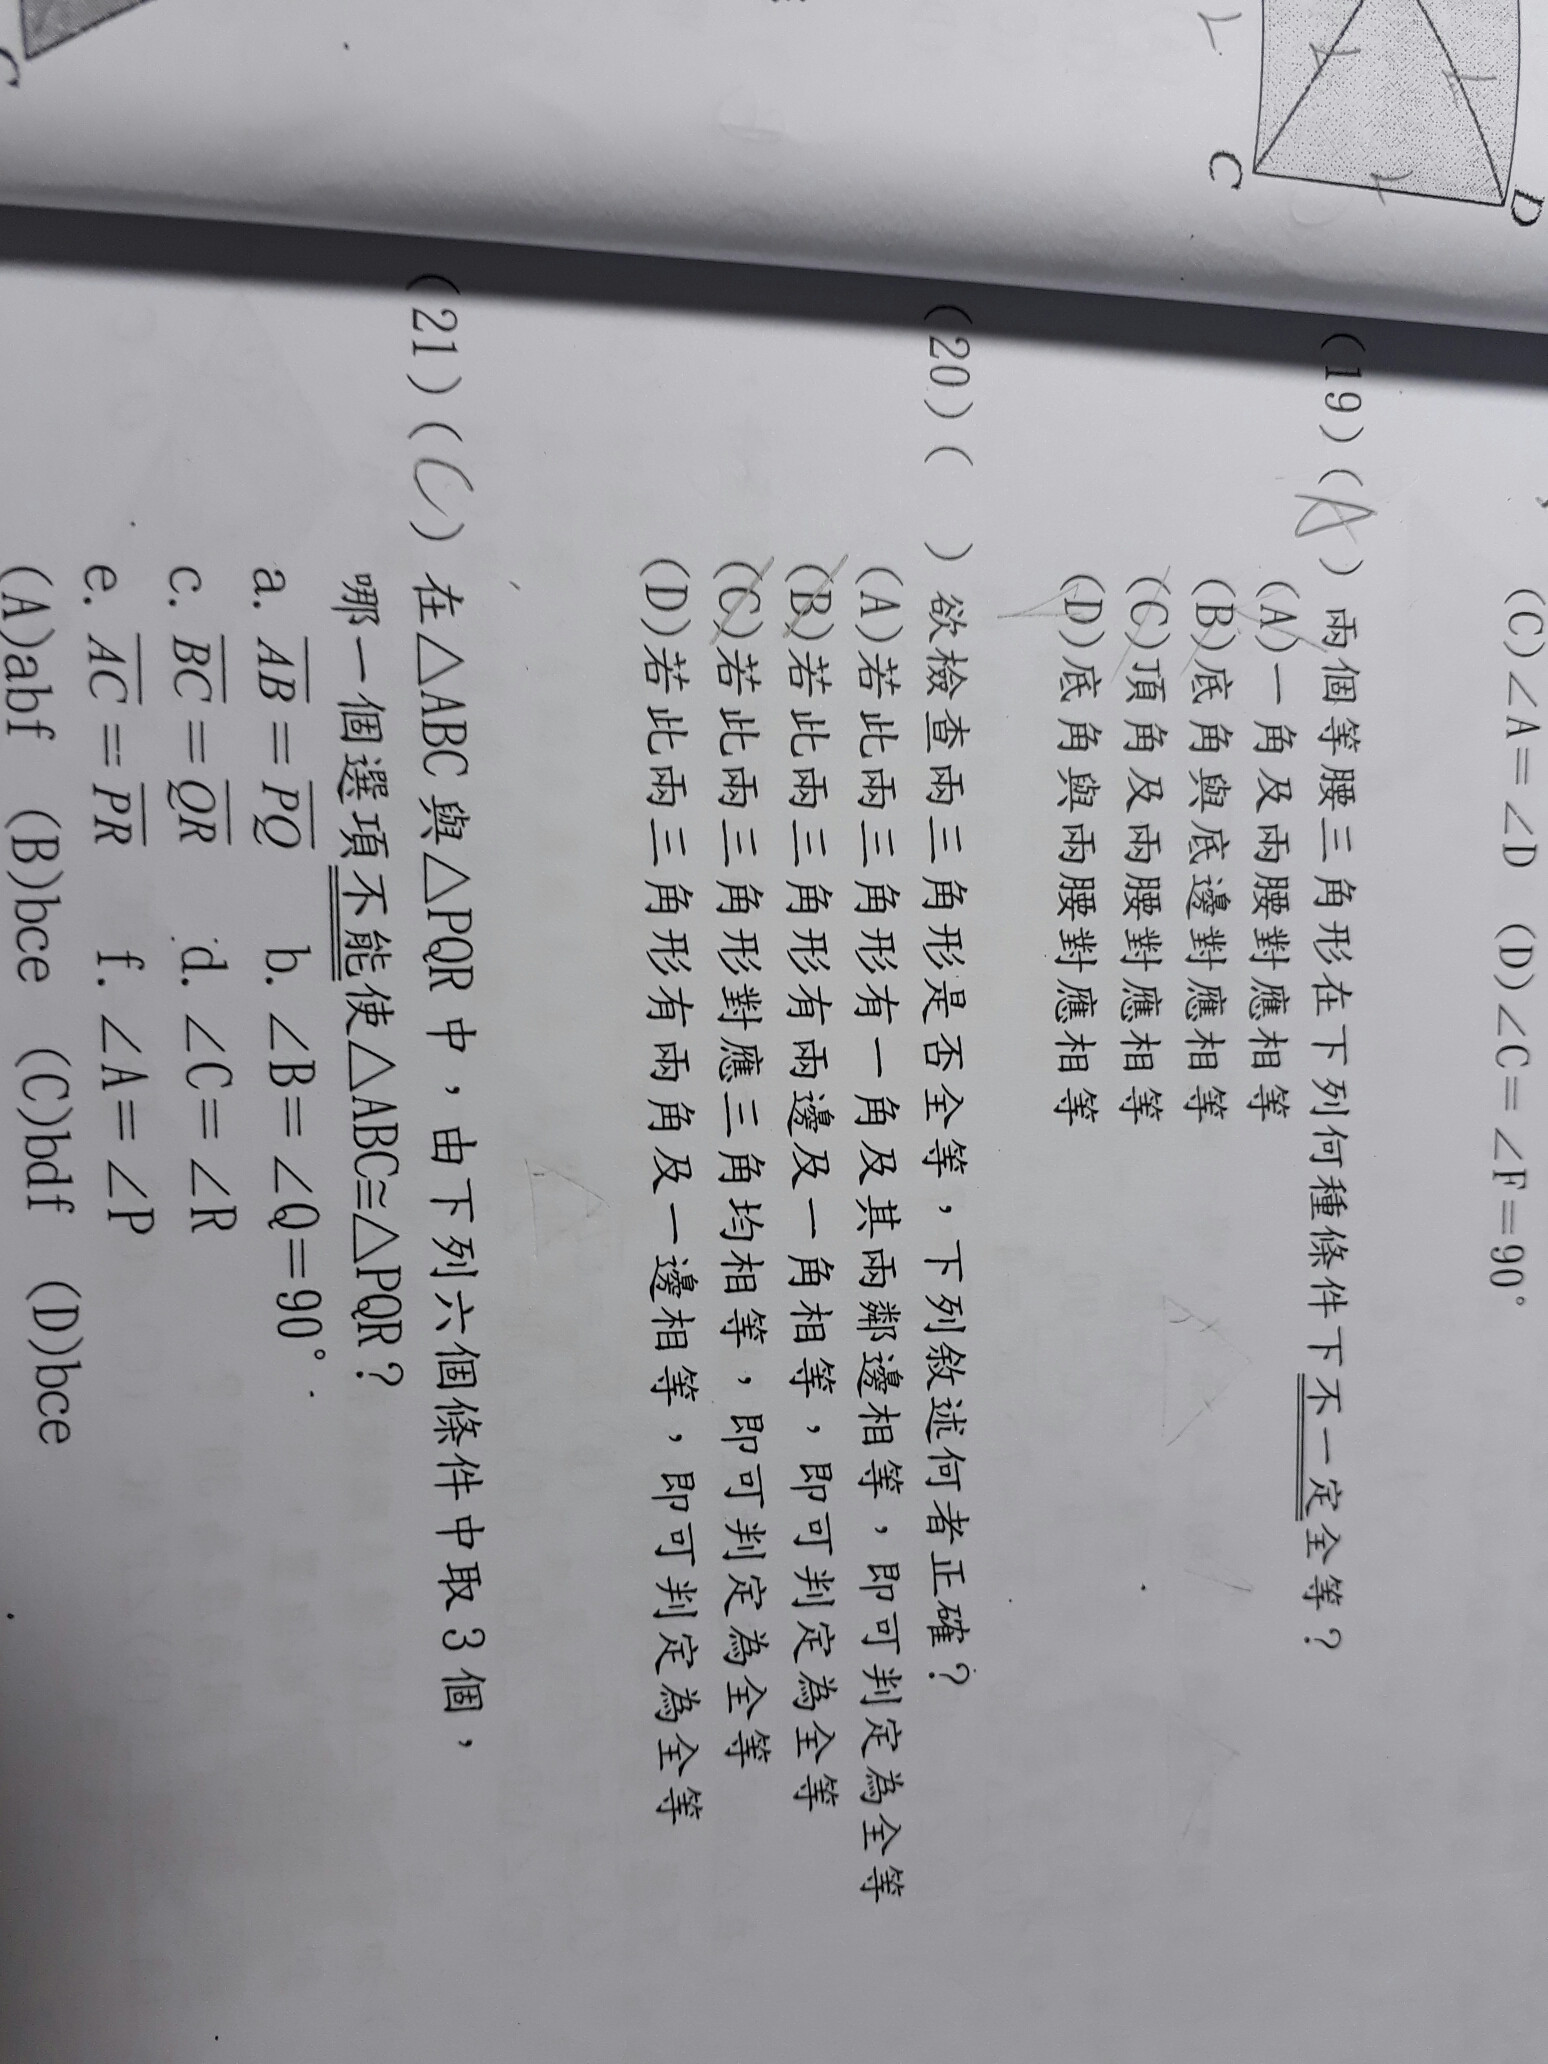 C
D
C
(C)∠A=∠D (D)∠C=∠F=90°
(19)(A) 兩個等腰三角形在下列何種條件下不一定全等?
(A)一角及兩腰對應相等
(B)底角與底邊對應相等
(C)頂角及兩腰對應相等
(D)底角與兩腰對應相等
(20)( ) 欲檢查兩三角形是否全等,下列敘述何者正確?
(A)若此兩三角形有一角及其兩鄰邊相等,即可判定為全等
(B)若此兩三角形有兩邊及一角相等,即可判定為全等
(C)若此兩三角形對應三角均相等,即可判定為全等
(D)若此兩三角形有兩角及一邊相等,即可判定為全等
(21)(C) 在△ABC與△PQR中,由下列六個條件中取3個,
哪一個選項不能使△ABC≅△PQR?
a. AB=PQ b. ∠B=∠Q=90°
c. BC=QR d. ∠C=∠R
e. AC=PR f. ∠A=∠P
(A)abf (B)bce (C)bdf (D)bce